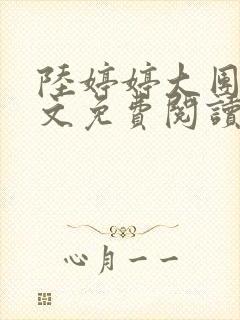 陸婷婷大围
文免費閱讀
心月一一